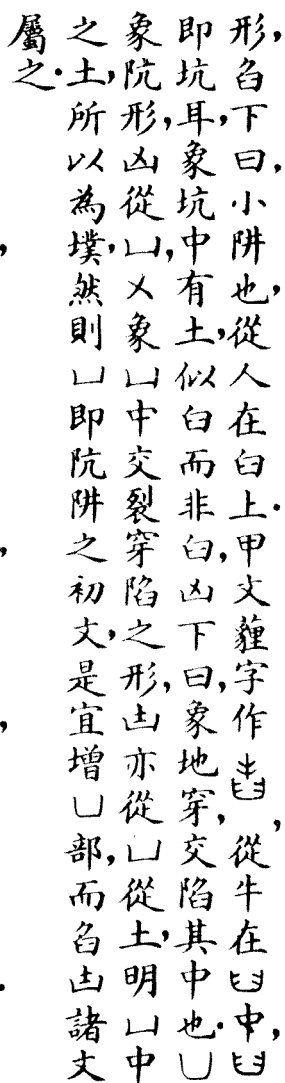 形，臽下曰，小阱也，從人在臼上．甲文貍字作，從牛在中，
即坑耳，象坑中有土，似臼而非臼，凶下曰，象地穿，交陷其中也．凵
象阬形，凶從凵，㐅象凵中交裂穿陷之形，凷亦從凵從土，明凵中
之土，所以為墣，然則凵即阬阱之初文，是宜增凵部，而臽凷諸文
屬之．